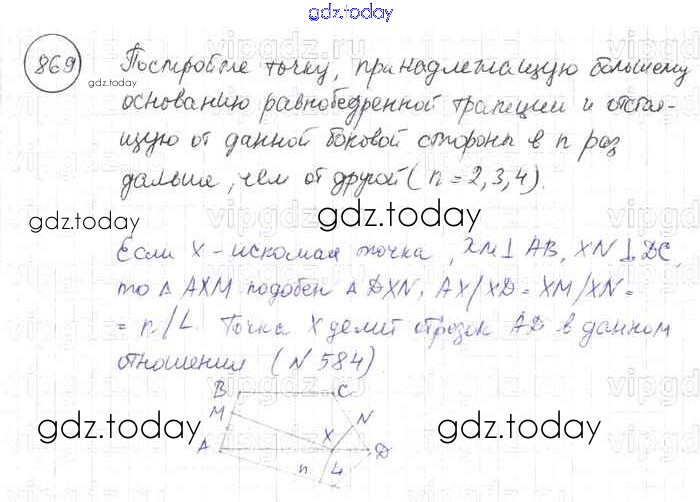 gdz.today
869
Постройте точку, принадлежащую большему
основанию равнобедренной трапеции и отстоя-
щую от данной боковой стороны в n раз
дальше, чем от другой (n = 2, 3, 4).
gdz.today
gdz.today
gdz.today
gdz.today
Если X - искомая точка, XM ⊥ AB, XN ⊥ DC,
то Δ AXM подобен Δ DXN, AX/XD = XM/XN =
= n/L. Точка X делит отрезок AD в данном
отношении (N 584)
B C
M N
A X D
n L
gdz.today
gdz.today